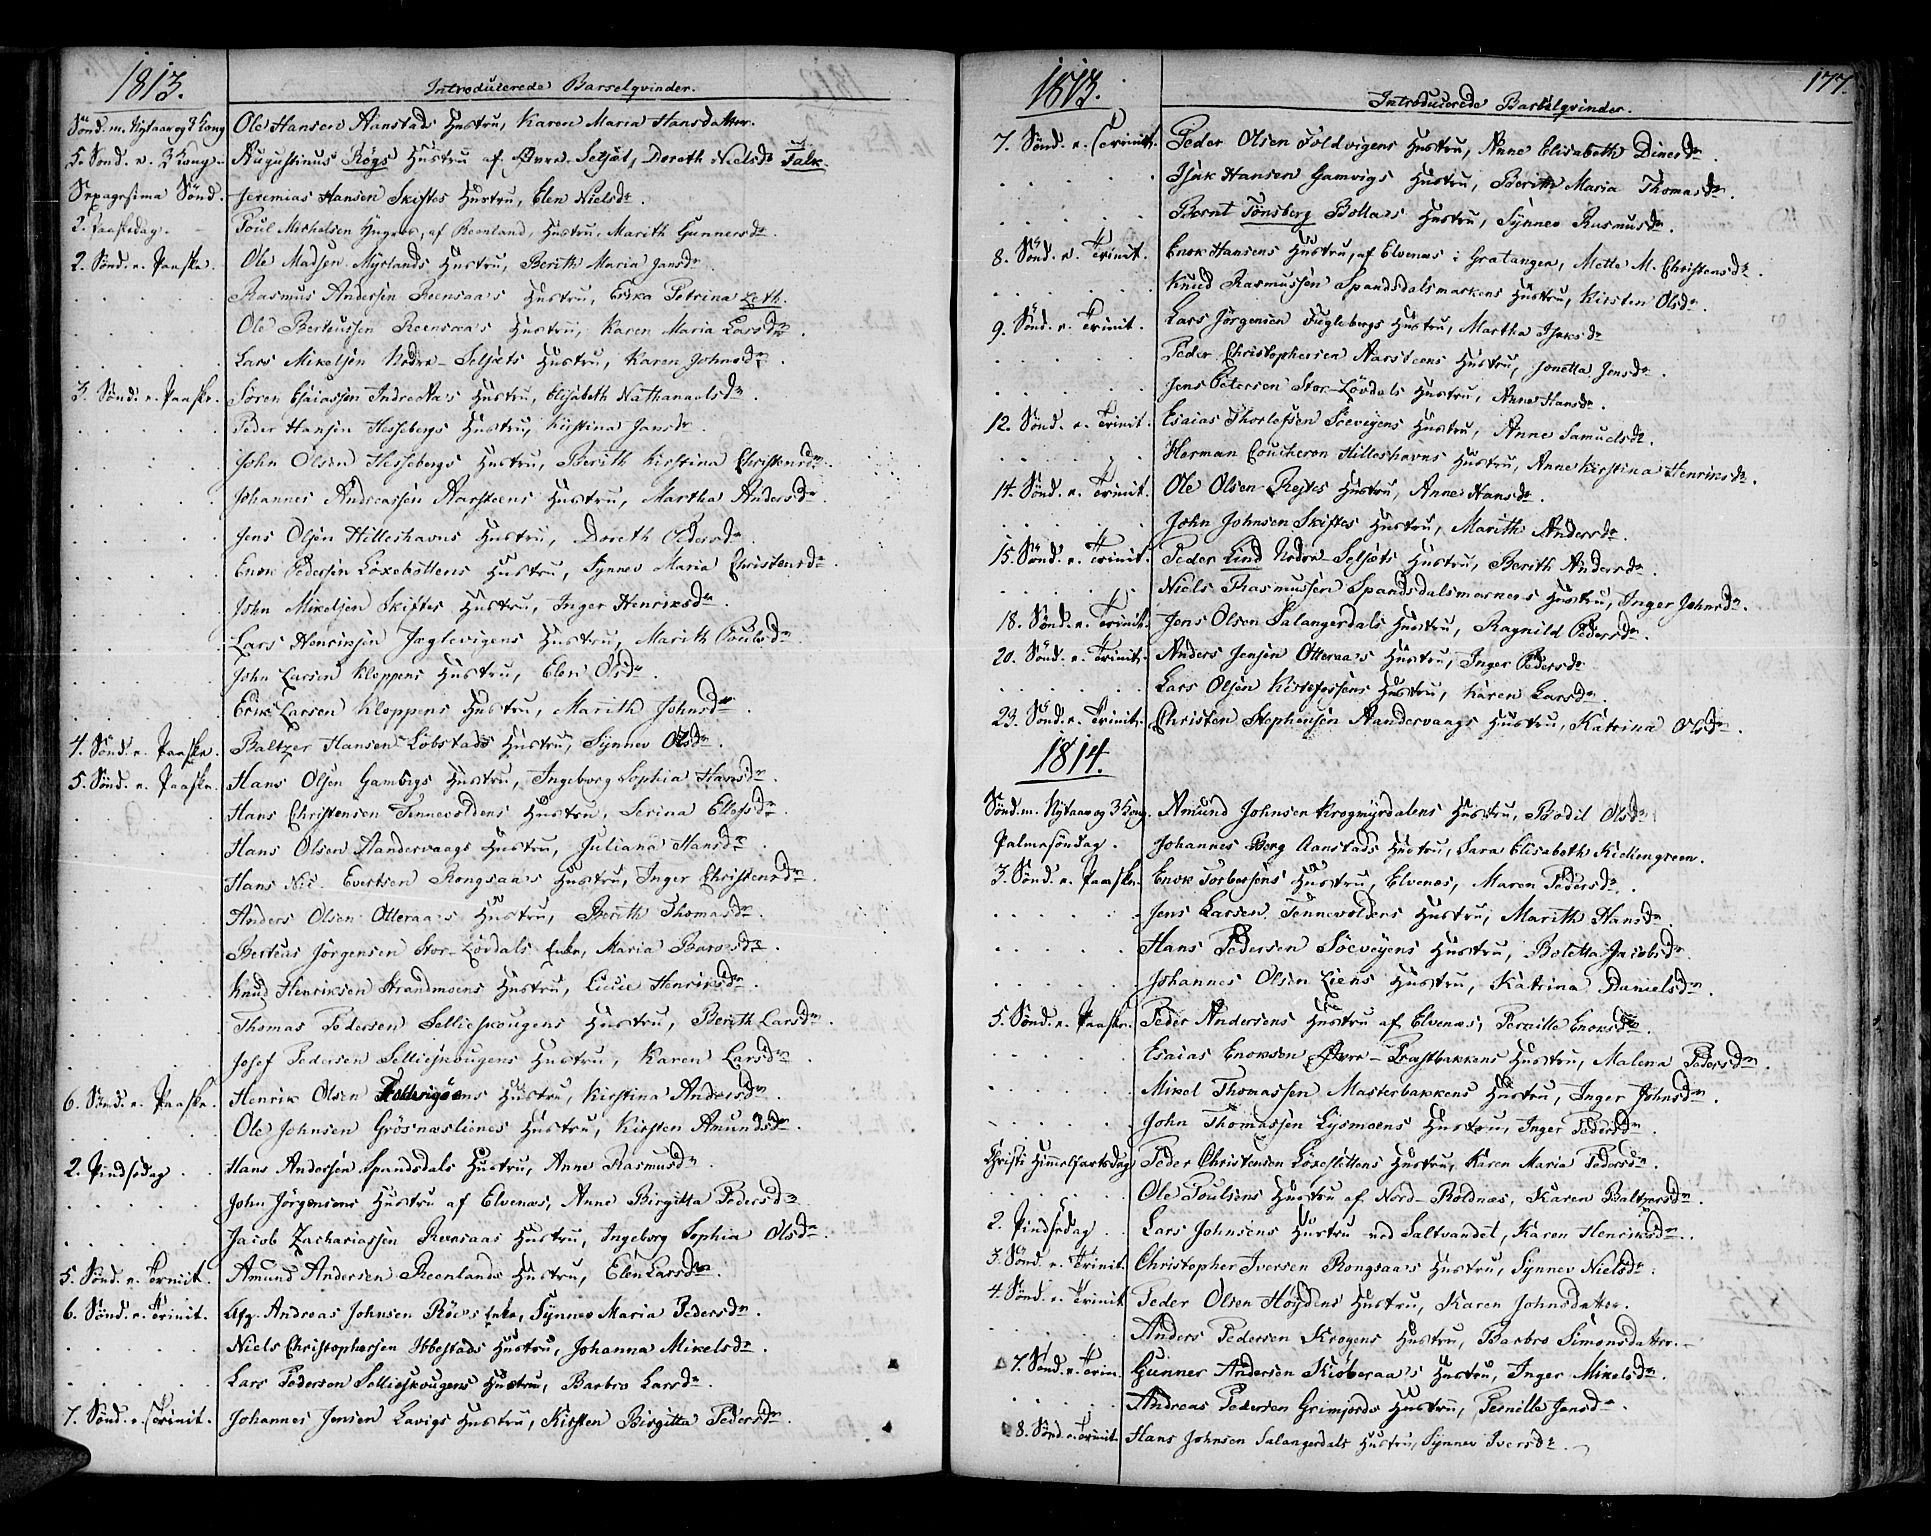 1813.
Introducerede Barselqvinder.
Sönd. m. Nytaar og 3 Kong Ole Hansen Aanstads Hustru, Karen Maria Hansdatter.
5. Sönd. e. 3 Kong. Augustinus Rögs Hustru af Øvre-Seljæt, Doreth Nielsdr Falk.
Sepagesima Sönd. Jeremias Hansen Skiftes Hustru, Elen Nielsdr.
2. Paaskedag. Poul Michelsen af Reenland, Hustru, Marith Gunnersdr.
2. Sönd. e. Paaske. Ole Madsen Myrlands Hustru, Berith Maria Jansdr
Rasmus Andersen Reensaa's Hustru, Erika Petrina Leth.
Ole Berteussen Reensaa's Hustru, Karen Maria Larsdr.
Lars Mikelsen Nedre-Seljæts Hustru, Karen Johnsdr.
3. Sönd. e. Paaske. Sören Esaiassen Indre Aa's Hustru, Elisabeth Nathanaelsdr.
Peder Hansen Hessebergs Hustru, Kirstina Jansdr.
John Olsen Hessebergs Hustru, Berith Kirstina Christensdr.
Johannes Andreassen Aarsteens Hustru, Martha Andersdr.
Jens Olsen Hilleshavns Hustru, Doreth Pedersdr.
Enok Pedersen Löxebottens Hustru, Synnev Maria Christensdr.
John Mikelsen Skiftes Hustru, Inger Henriksdr.
Lars Henriksen Jæglevigens Hustru, Marith Poulsdr.
John Larsen Kloppens Hustru, Elen Olsdr.
Erik Larsen Kloppens Hustru, Marith Johnsdr.
4. Sönd. e. Paaske. Baltzer Hansen Löbstads Hustru, Synnev Olsdr.
5. Sönd. e. Paaske. Hans Olsen Gamvigs Hustru, Ingeborg Sophia Hansdr.
Hans Christensen Tennevoldens Hustru, Serina Ellefsdr.
Hans Olsen Aandervaags Hustru, Juliana Hansdr.
Hans Nic. Evertsen Rongsaa's Hustru, Inger Christensdr.
Anders Olsen Otteraa's Hustru, Berith Thomasdr.
Berteus Jörgensen Stor-Lövdals Enke, Maria
Knud Henriksen Strandmoens Hustru, Lucie Henriksdr.
Thomas Pedersen Sellieskougens Hustru, Berith Larsdr.
Josef Pedersen Sellieskougens Hustru, Karen Larsdr.
6. Sönd. e. Paaske. Henrik Olsen Hustru, Kirstina Andersdr.
Ole Johnsen Grösnæslienes Hustru, Kirsten Amundsdr.
2. Pindsedag. Hans Andersen Spandsdals Hustru, Anne Rasmusdr.
John Jörgensens Hustru af Elvenæs, Anne Birgitta Pedersdr.
Jacob Zachariassen Reensaas Hustru, Ingeborg Sophia Olsdr.
5. Sönd. e. Trinit. Amund Andersen Reenlands Hustru, Elen Larsdr.
6. Sönd. e. Trinit. Afg. Andreas Johnsen Röe's Enke, Synnev Maria Pedersdr.
Niels Christophersen Ibbestads Hustru, Johanna Mikelsdr.
Lars Pedersen Sellieskougens Hustru, Barbro Larsdr.
7. Sönd. e. Trinit. Johannes Jensen Lavigs Hustru, Kirsten Birgitta Pedersdr.
1813.
Introducerede Barselqvinder.
177
7. Sönd. e. Trinit. Peder Olsen Foldvigens Hustru, Anne Elisabeth Dinesdr.
Isak Hansen Gamvigs Hustru, Berith Maria Thomasdr.
Bernt Tönsberg Bolla's Hustru, Synnev Rasmusdr.
8. Sönd. e. Trinit. Enok Hansens Hustru, af Elvenæs i Gratangen, Mette M. Christensdr.
Knud Rasmussen Spandsdalsmarkens Hustru, Kirsten Olsdr.
9. Sönd. e. Trinit. Lars Jörgensen Fuglebergs Hustru, Martha Isaksdr
Peder Christophersen Aarsteens Hustru, Jonetta Jensdr.
Jens Petersen Stor-Lövdals Hustru, Anne Hansdr.
12. Sönd. e. Trinit. Esaias Thorlefsen Söevegens Hustru, Anne Samuelsdr.
Herman Coucheron Hilleshavns Hustru, Anne Kirstina Henriksdr.
14. Sönd. e. Trinit. Ole Olsen Hustru, Anne Hansdr.
John Johnsen Skiftes Hustru, Marith Andersdr.
15. Sönd. e. Trinit. Peder Lind Nedre Seljæts Hustru, Berith Andersdr.
Niels Rasmussen Spandsdalsmarkens Hustru, Inger Johnsdr.
18. Sönd. e. Trinit. Jens Olsen Salangerdals Hustru, Ragnild Pedersdr.
20. Sönd. e. Trinit. Anders Jensen Otteraa's Hustru, Inger Pedersdr
Lars Olsen Kistefossens Hustru, Karen Larsdr.
23. Sönd. e. Trinit. Christen Stephensen Aandervaags Hustru, Katrina Olsdr.
1814.
Sönd. m. Nytaar og 3 Kong. Amund Johnsen Krogmyrdalens Hustru, Bodil Olsdr
Palmesöndag. Johannes Berg Aanstads Hustru, Sara Elisabeth Kiellengreen.
3. Sönd. e. Paaske. Enok Torbersens Hustru, Elvenæs, Maren Pedersdr.
Jens Larsen Tennevoldens Hustru, Marith Hansdr.
Hans Pedersen Söevegens Hustru, Boletta Jacobsdr.
Johannes Olsen Liens Hustru, Katrina Danielsdr.
5. Sönd. e. Paaske. Peder Andersens Hustru af Elvenæs, Pernille Enoksdr.
Esaias Enoksen Øvre-Præstbakkens Hustru, Malena Pedersdr.
Mikel Thomassen Masterbakkens Hustru, Inger Johnsdr.
John Thomassen Lysmoens Hustru, Inger Pedersdr.
Christi Himmelfartsdag Peder Christensen Löxeslettens Hustru, Karen Maria Pedersdr.
Ole Poulsens Hustru af Nord-Roldnæs, Karen Baltzersdr.
2. Pindsedag Lars Johnsens Hustru ved Saltvandet, Karen Henriksdr.
3. Sönd. e. Trinit. Christopher Iversen Rongsaa's Hustru, Synnev Nielsdr.
4. Sönd. e. Trinit Peder Olsen Höydens Hustru, Karen Johnsdatter.
Anders Pedersen Krogens Hustru, Barbro Simonsdatter.
7. Sönd. e. Trin. Gunner Andersen Kioberaa's Hustru, Inger Mikelsdr.
Andreas Pedersen Grimjords Hustru, Pernille Jensdr.
8. Sönd. e. Trinit. Hans Johnsen Salangerdals Hustru, Synnev Iversdr.